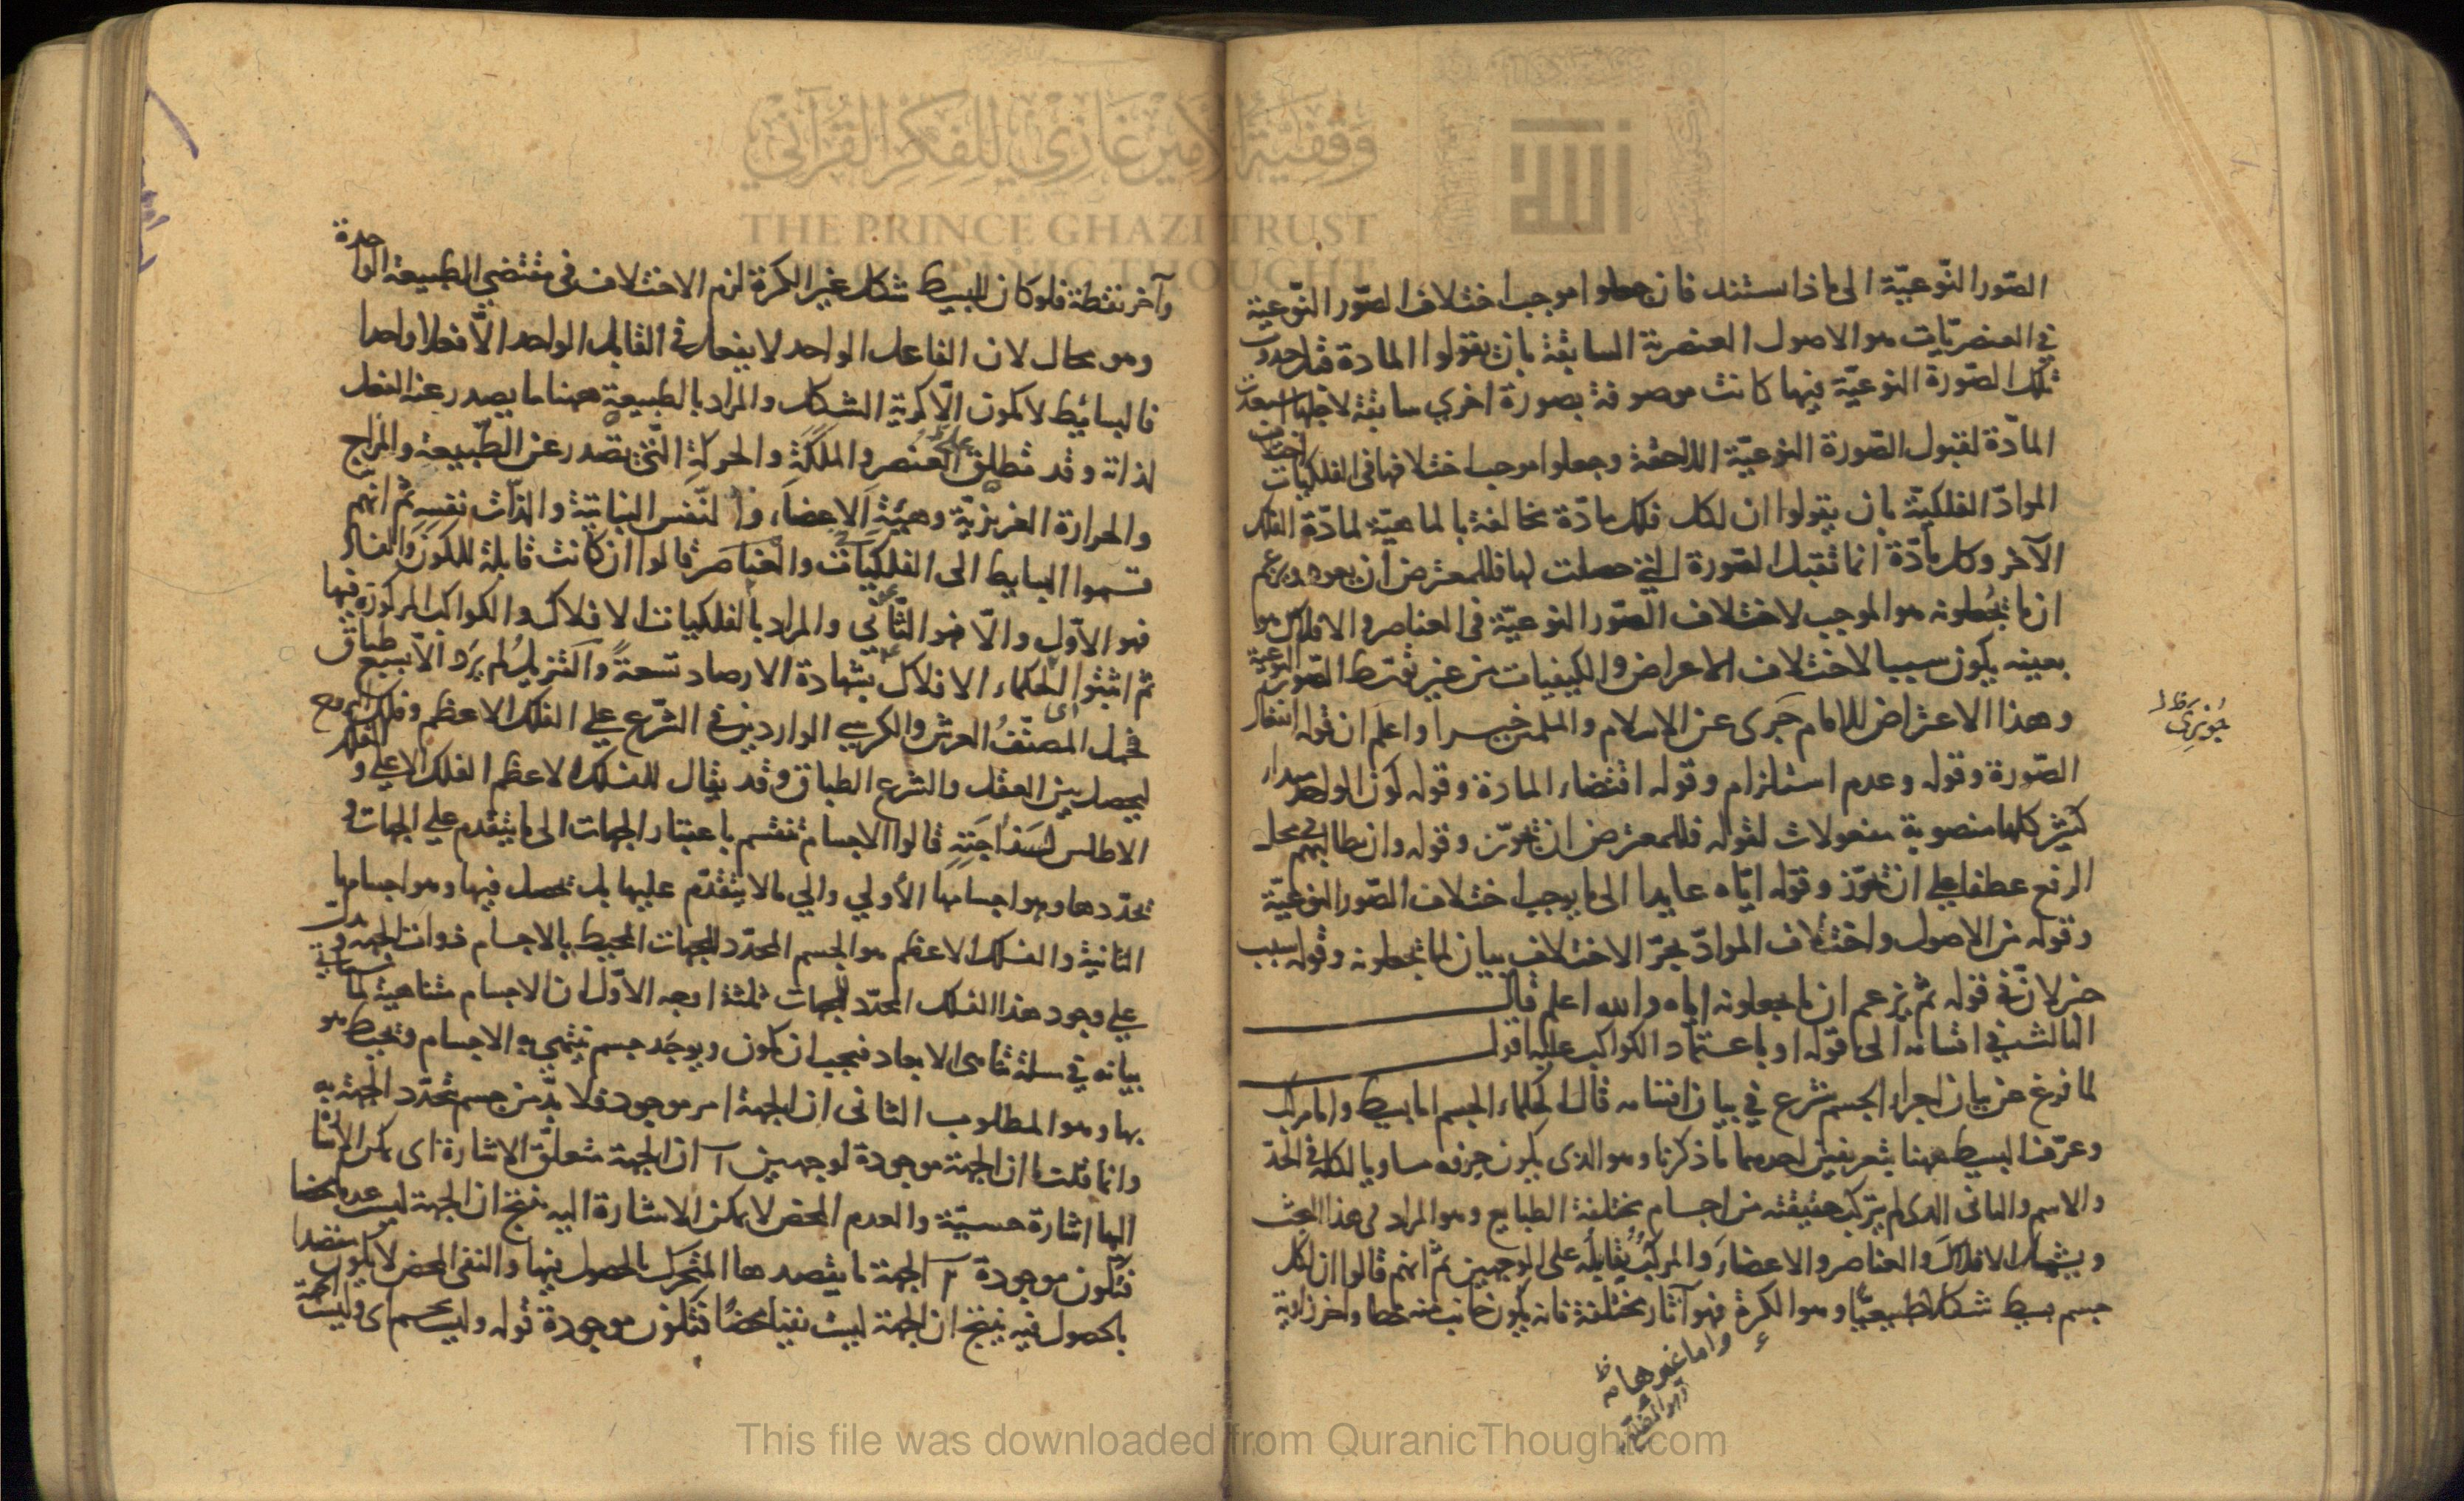 وقفية الأمير غازي للفكر القرآني
THE PRINCE GHAZI TRUST
FOR QUR'ANIC THOUGHT
الصّور النّوعيّة الى ماذا استند فان جعلوا موجب اختلاف الصّور النّوعية
في العنصريّات هو الاصول العنصرية السابقة بان يقولوا المادة قبل حدوث
تلك الصّورة النوعيّة فيها كانت موصوفة بصورة اخري سابقة لاجلها استعدت
المادّة لقبول الصّورة النوعيّة اللاحقة وجعلوا موجب اختلافها في الفلكيات اختلاف
الموادّ الفلكيّة بان يقولوا ان لكل فلك مادّة مخالفة بالماهيّة لمادّة الفلك
الآخر وكل مادّة انما تقبل الصّورة التي حصلت لها فللمعترض ان يعود ويزعم
ان ما تجعلونه هو الموجب لاختلاف الصّور النوعيّة في العناصر والافلاك هو
بعينه يكون سببا لاختلاف الاعراض والكيفيات من غير توسّط الصّور النوعية
وهذا الاعتراض للامام جرى عن الاسلام والمسلمين خيرا واعلم ان قوله انتفاء
الصّورة وقوله وعدم استلزام وقوله اقتضاء المادة وقوله كون الواحد مبدا
كثير كلها منصوبة مفعولات لقوله فللمعترض ان تجوّز وقوله وان يطالبهم في محل
الرفع عطفا على ان تجوّز وقوله ايّاه عايدا الى ما يوجب اختلاف الصّور النوعيّة
وقوله من الاصول واختلاف الموادّ بجرّ الاختلاف بيان لما تجعلونه وقوله سبب
خبر لانّ في قوله ثمّ يزعم ان ما يجعلونه اياه والله اعلم قال
الثالث في اقسامه الى قوله او باعتماد الكواكب عليها اقول
لما فرغ من بيان اجزاء الجسم شرع في بيان اقسامه قال الحكماء الجسم اما بسيط واما مركب
وعرّف البسيط ههنا بتعريفين احدهما ما ذكرنا وهو الذي يكون جزؤه مساويا لكله في الحدّ
والاسم والثاني الذي لم يتركب حقيقته من اجسام مختلفة الطبايع وهو المراد في هذا البحث
ويشمل الافلاك والعناصر والاعضاء والمركب يقابله على الوجهين ثمّ انهم قالوا ان لكل
جسم بسيط شكلا طبيعيّا وهو الكرة فهو آثار مختلفة فانه يكون جانب منه خطا واخر زاوية
واما غيرها
وآخر نقطة فلو كان للبسيط شكل غير الكرة لزم الاختلاف في مقتضي الطبيعة الواحدة
وهو محال لان الفاعل الواحد لا يفعل في القابل الواحد الّا فعلا واحدا
فالبسائط لا تكون الّا كرية الشكل والمراد بالطبيعة ههنا ما يصدر عنه الفعل
لذاته وقد تطلق على العنصر والملكة والحركة الّتي تصدر عن الطّبيعة والمزاج
والحرارة الغريزيّة وهيئة الاعضاء والنّفس النباتية والذّات نفسه ثمّ انهم
قسموا البسايط الى الفلكيات والعناصر قالوا ان كانت قابلة للكون والفساد
فهو الاوّل والّا فهو الثّاني والمراد بالفلكيات الافلاك والكواكب المركوزة فيها
ثم اثبتوا الحكماء الافلاك بشهادة الارصاد تسعةً والتنزيل لم يرد الّا بسبع طباق
فحمل المصنّفُ العرش والكرسي الواردين في الشّرع على الفلك الاعظم وفلك البروج
ليحصل بين العقل والشرع الطباق وقد يقال للفلك الاعظم الفلك الاعلى والفلك
الاطلس لسذاجته قالوا الاجسام تنقسم باعتبار الجهات الى ما يتقدم على الجهات و
تحدّدها وهو اجسامها الأولي والي ما لا يتقدّم عليها بل تحصل فيها وهو اجسامها
الثانية والفلك الاعظم هو الجسم المحدّد للجهات المحيط بالاجسام ذوات الجهة
على وجود هذا الفلك المحدّد للجهات ثلثة اوجه الاوّل ان الاجسام متناهية لما سياتي
بيانه في مسئلة تناهي الابعاد فيجب ان تكون ويوجد جسم ينتهي به الاجسام ويحيط هو
بها وهو المطلوب الثاني ان الجهة امر موجود فلا بدّ من جسم تحدّد الجهة به
وانما قلت ان الجهة موجودة لوجهين آ ان الجهة متعلّق الاشارة اى يمكن الاشارة
اليها اشارة حسيّة والعدم المحض لا يمكن الاشارة اليه ينتج ان الجهة ليست عدما محضا
فتكون موجودة الجهة ما يقصدها المتحرك بالحصول فيها والنفي المحض لا يكون مقصدا
بالحصول فيه ينتج ان الجهة ليست نفيا محضا فتكون موجودة قوله وليست بجسم اى وليست الجهة
This file was downloaded from QuranicThought.com